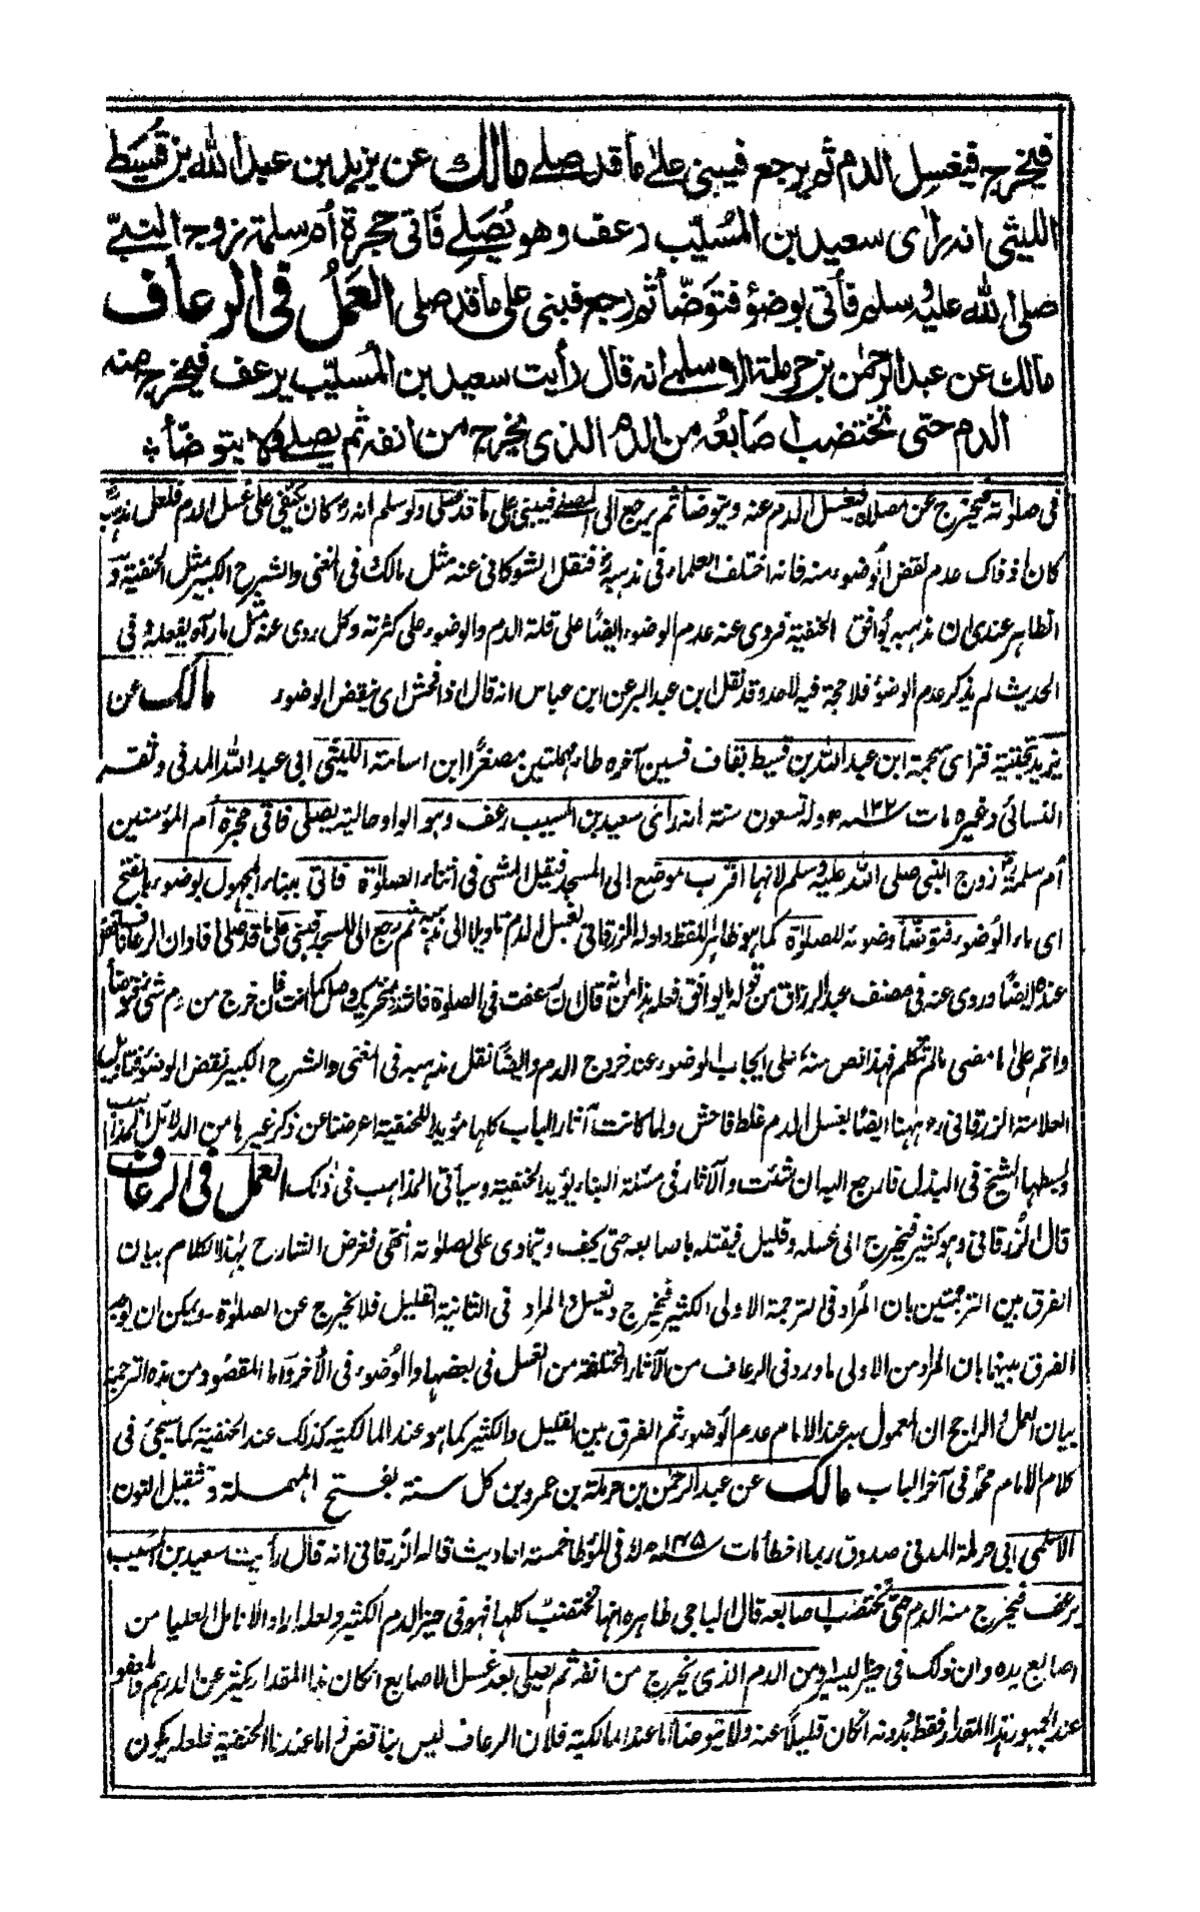 فيخرج فيغسل الدم ثم يرجع فيبني على ما قد صلى مالك عن يزيد بن عبد الله بن قسيط
الليثي انه راى سعيد بن المسيب رعف وهو يصلي فاتى حجرة ام سلمة زوج النبي
صلى الله عليه وسلم فأتي بوضوء فتوضأ ثم رجع فبنى على ما قد صلى العمل في الرعاف
مالك عن عبد الرحمن بن حرملة الاسلمي انه قال رأيت سعيد بن المسيب يرعف فيخرج منه
الدم حتى تختضب اصابعه من الدم الذي يخرج من انفه ثم يصلي ولا يتوضأ
في صلاته فيخرج عن مصلاه فيغسل الدم عنه ويتوضأ ثم يرجع الى المصلى فيبني على ما قد صلى ولو سلم انه كان يكتفي على غسل الدم فلعل مذهبه
كان اذ ذاك عدم نقض الوضوء منه فانه اختلف العلماء في مذهبه فنقل الشوكاني عنه مثل مالك وفي المغني والشرح الكبير مثل الحنفية و
الظاهر عندي ان مذهبه يوافق الحنفية فروي عنه عدم الوضوء ايضا على قلة الدم والوضوء على كثرته وكل روى عنه مثل ما رآه يفعله وفي
الحديث لم يذكر عدم الوضوء فلا حجة فيه لاحد وقد نقل ابن عبد البر عن ابن عباس انه قال اذا فحش اي ينقض الوضوء مالك عن
يزيد بتحتية فزاي معجمة ابن عبد الله بن قسيط بقاف فسين آخره طاء مهملتين مصغرا ابن اسامة الليثي ابي عبد الله المدني وثقه
النسائي وغيره مات سنة ١٢٢ وله تسعون سنة انه رأى سعيد بن المسيب رعف وهو الواو حالية يصلي فاتى حجرة ام المؤمنين
أم سلمة زوج النبي صلى الله عليه وسلم لانها اقرب موضع الى المسجد فيقل المشي في اثناء الصلوة فاتي ببناء المجهول بوضوء بالفتح
اي ماء الوضوء فتوضأ وضوئه للصلوة كما هو ظاهر اللفظ واوله الزرقاني بغسل الدم تاويلا الى مذهبه ثم رجع الى المسجد فبنى على ما قد صلى افاد ان الرعاف
عنده ايضا وروي عنه في مصنف عبد الرزاق من قوله ما يوافق فعله هذا قال ان رعفت في الصلوة فاشدد منخريك وصل كما انت فان خرج من دم شئ فتوضأ
واتم على ما مضى مالم تتكلم فهذا نص منه على ايجاب الوضوء عند خروج الدم وايضا نقل مذهبه في المغني والشرح الكبير نقض الوضوء فتاويل
العلامة الزرقاني ههنا ايضا بغسل الدم غلط فاحش ولما كانت آثار الباب كلها مؤيدا للحنفية اعرضنا عن ذكر غيرها من الدلائل
وبسطها الشيخ في البذل فارجع اليه ان شئت والآثار في مسئلة البناء يؤيد الحنفية وسيأتي المذاهب في ذلك العمل في الرعاف
قال الزرقاني وهو كثير فيخرج الى غسله وقليل فيفتله باصابعه حتى يجف ويتمادى على صلوته انتهى فغرض الشارح بهذا الكلام بيان
الفرق بين الترجمتين بان المراد في الترجمة الاولى الكثير فيخرج ويغسل والمراد في الثانية القليل فلا يخرج عن الصلوة - ويمكن ان يوجه
الفرق بينهما بان المراد من الاولى ما ورد في الرعاف من الآثار المختلفة من الغسل في بعضها والوضوء في الآخر واما المقصود من هذه الترجمة
بيان العمل والراجح ان المعمول به عند الامام عدم الوضوء ثم الفرق بين القليل والكثير كما هو عند المالكية كذلك عند الحنفية كما سيجئ في
كلام الامام محمد في آخر الباب مالك عن عبد الرحمن بن حرملة بن عمرو بن كل سنة بفتح المهملة وتثقيل النون
الاسلمي ابي حرملة المدني صدوق ربما اخطأ مات سنة ١٤٥ له في الموطا خمسة احاديث قاله الزرقاني انه قال رأيت سعيد بن المسيب
يرعف فيخرج منه الدم حتى تختضب اصابعه قال الباجي ظاهره انها تختضب كلها فهو في حيز الدم الكثير ولعله اراد الانامل العليا من
اصابع يده وان ذلك في حيز اليسير من الدم الذي يخرج من انفه ثم يصلي بعد غسل الاصابع ان كان هذا المقدار يكثير عن الدرهم
عند الجمهور هذا المقدار فقط وبدونه ان كان قليلا عنه ولا يتوضأ اما عند المالكية فلان الرعاف ليس بناقض واما عندنا الحنفية فلعله يكون